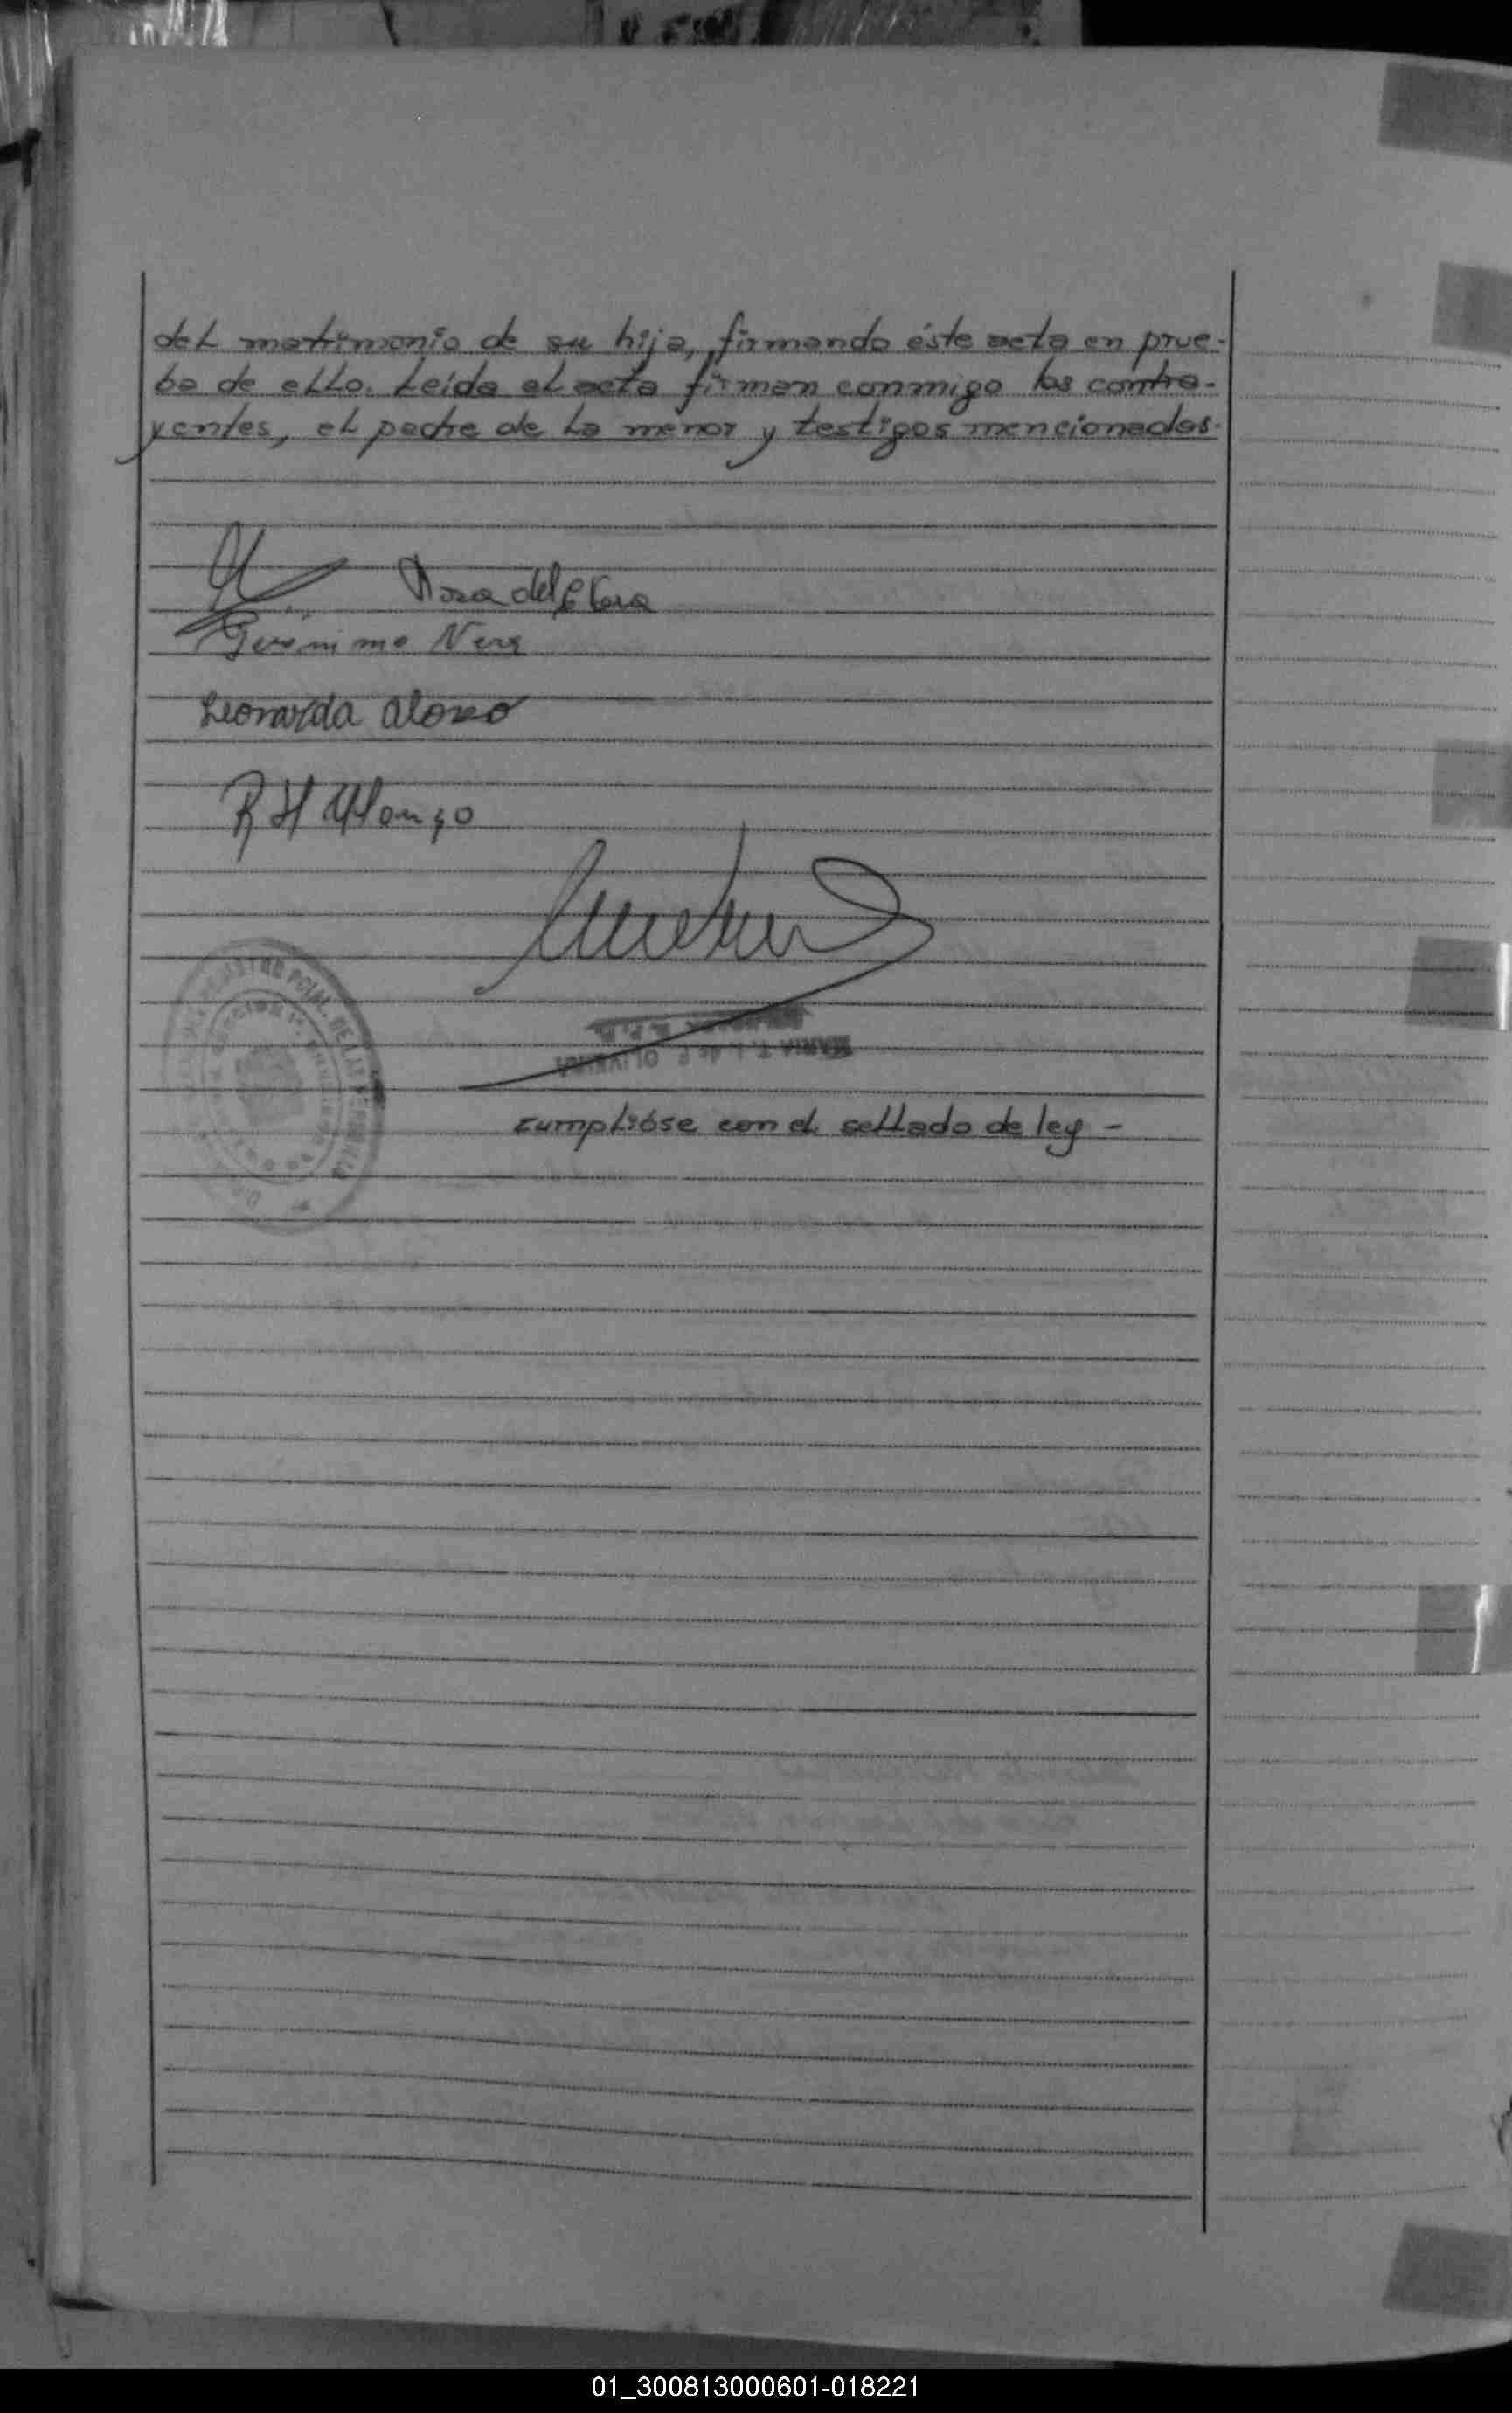 del matrimonio de su hija, firmando éste acta en prue-
ba de ello. Leída el acta firman conmigo los contra-
yentes, el padre de la menor y testigos mencionados.
Rosa del
Gerónimo Vera
Leonarda alonso
R H Alonso
MARIA T. L. de P. OLIVEIRA
cumplióse con el sellado de ley -
01_300813000601-018221